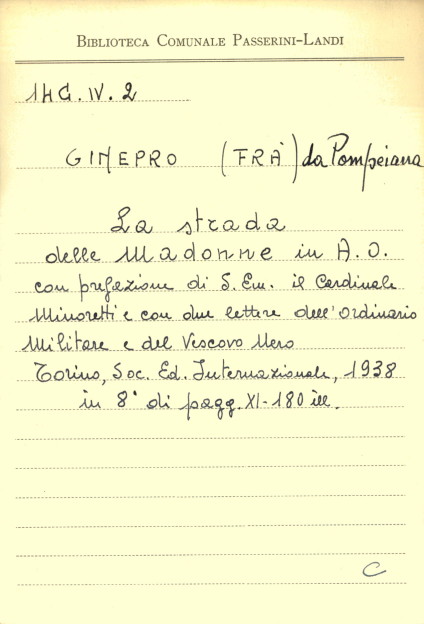 BIBLIOTECA COMUNALE PASSERINI-LANDI
1HG.IV.2
GINEPRO (FRÀ) da Pompeiana
La strada
delle Madonne in A.O.
con prefazione di S. Em. il Cardinale
Minoretti e con due lettere dell'Ordinario
Militare e del Vescovo Nero
Torino, Soc. Ed. Internazionale, 1938
in 8° di pagg. XI-180 ill.
C